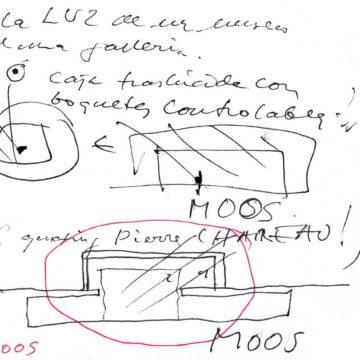 la LUZ de un museo
galleria.
caja traslucida con
boquetes controlables!
MOOS.
Pierre CHAREAU!
MOOS
MOOS